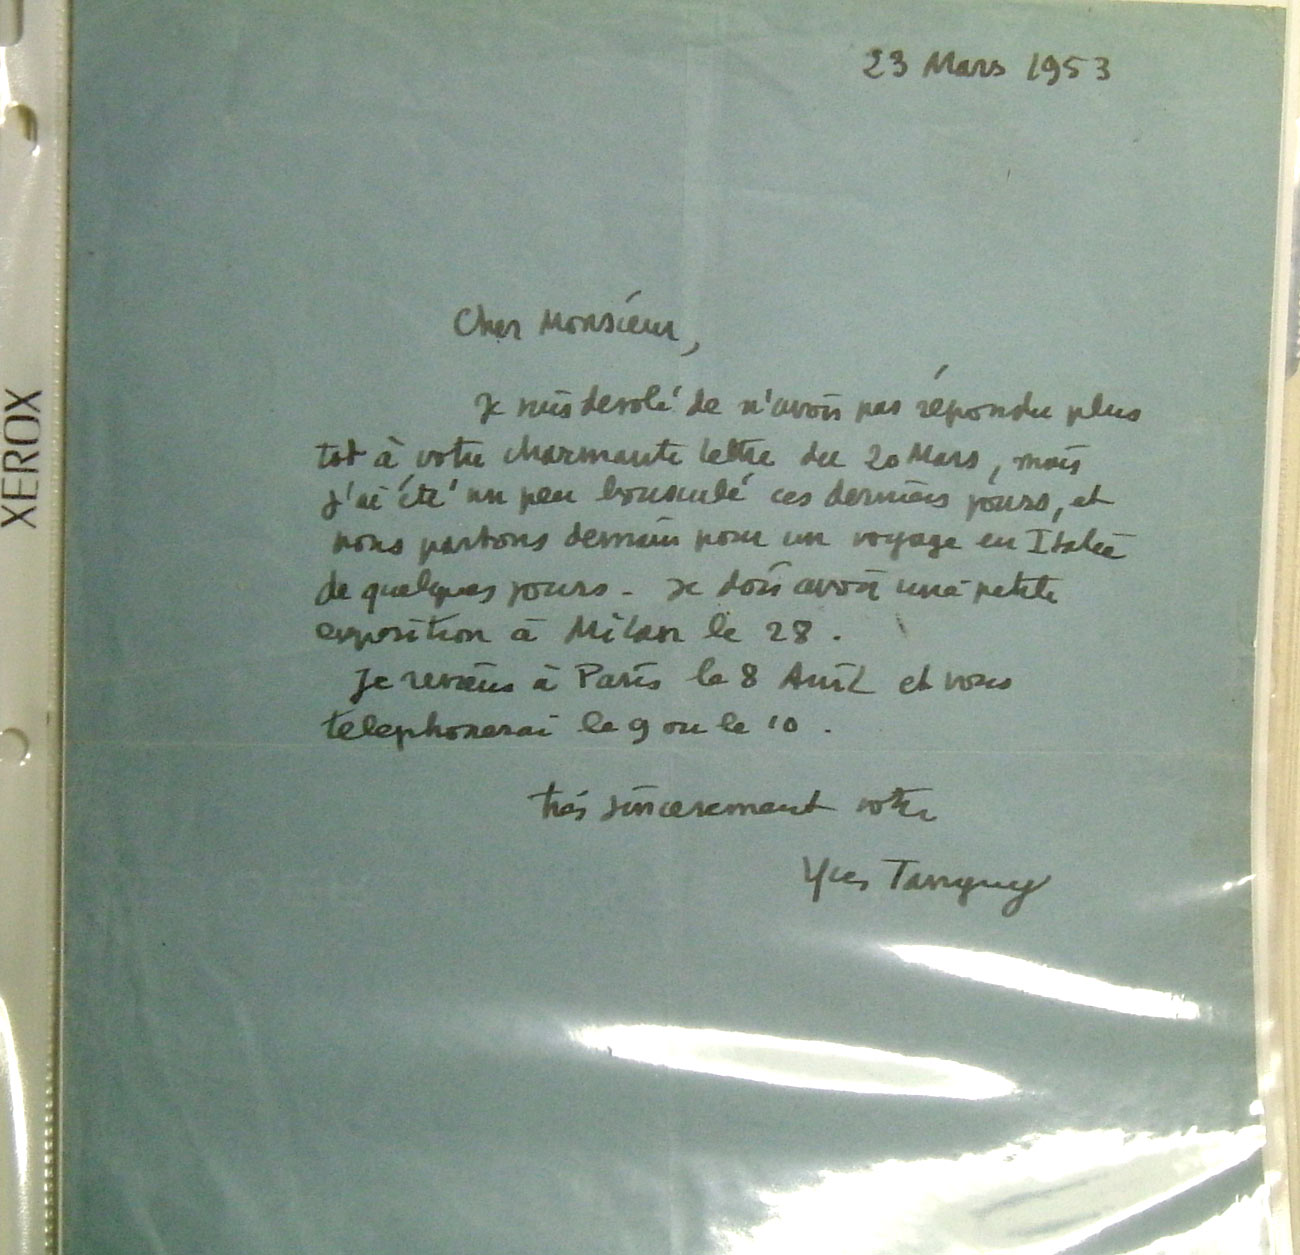 23 Mars 1953
Cher Monsieur,
Je suis desolé de n'avoir pas répondu plus
tot à votre charmante lettre du 20 Mars, mais
j'ai été un peu bousculé ces derniers jours, et
nous partons demain pour un voyage en Italie
de quelques jours. Je dois avoir une petite
exposition à Milan le 28.
Je reviens à Paris le 8 Avril et vous
telephonerai le 9 ou le 10.
très sincerement votre
Yves Tanguy
XEROX